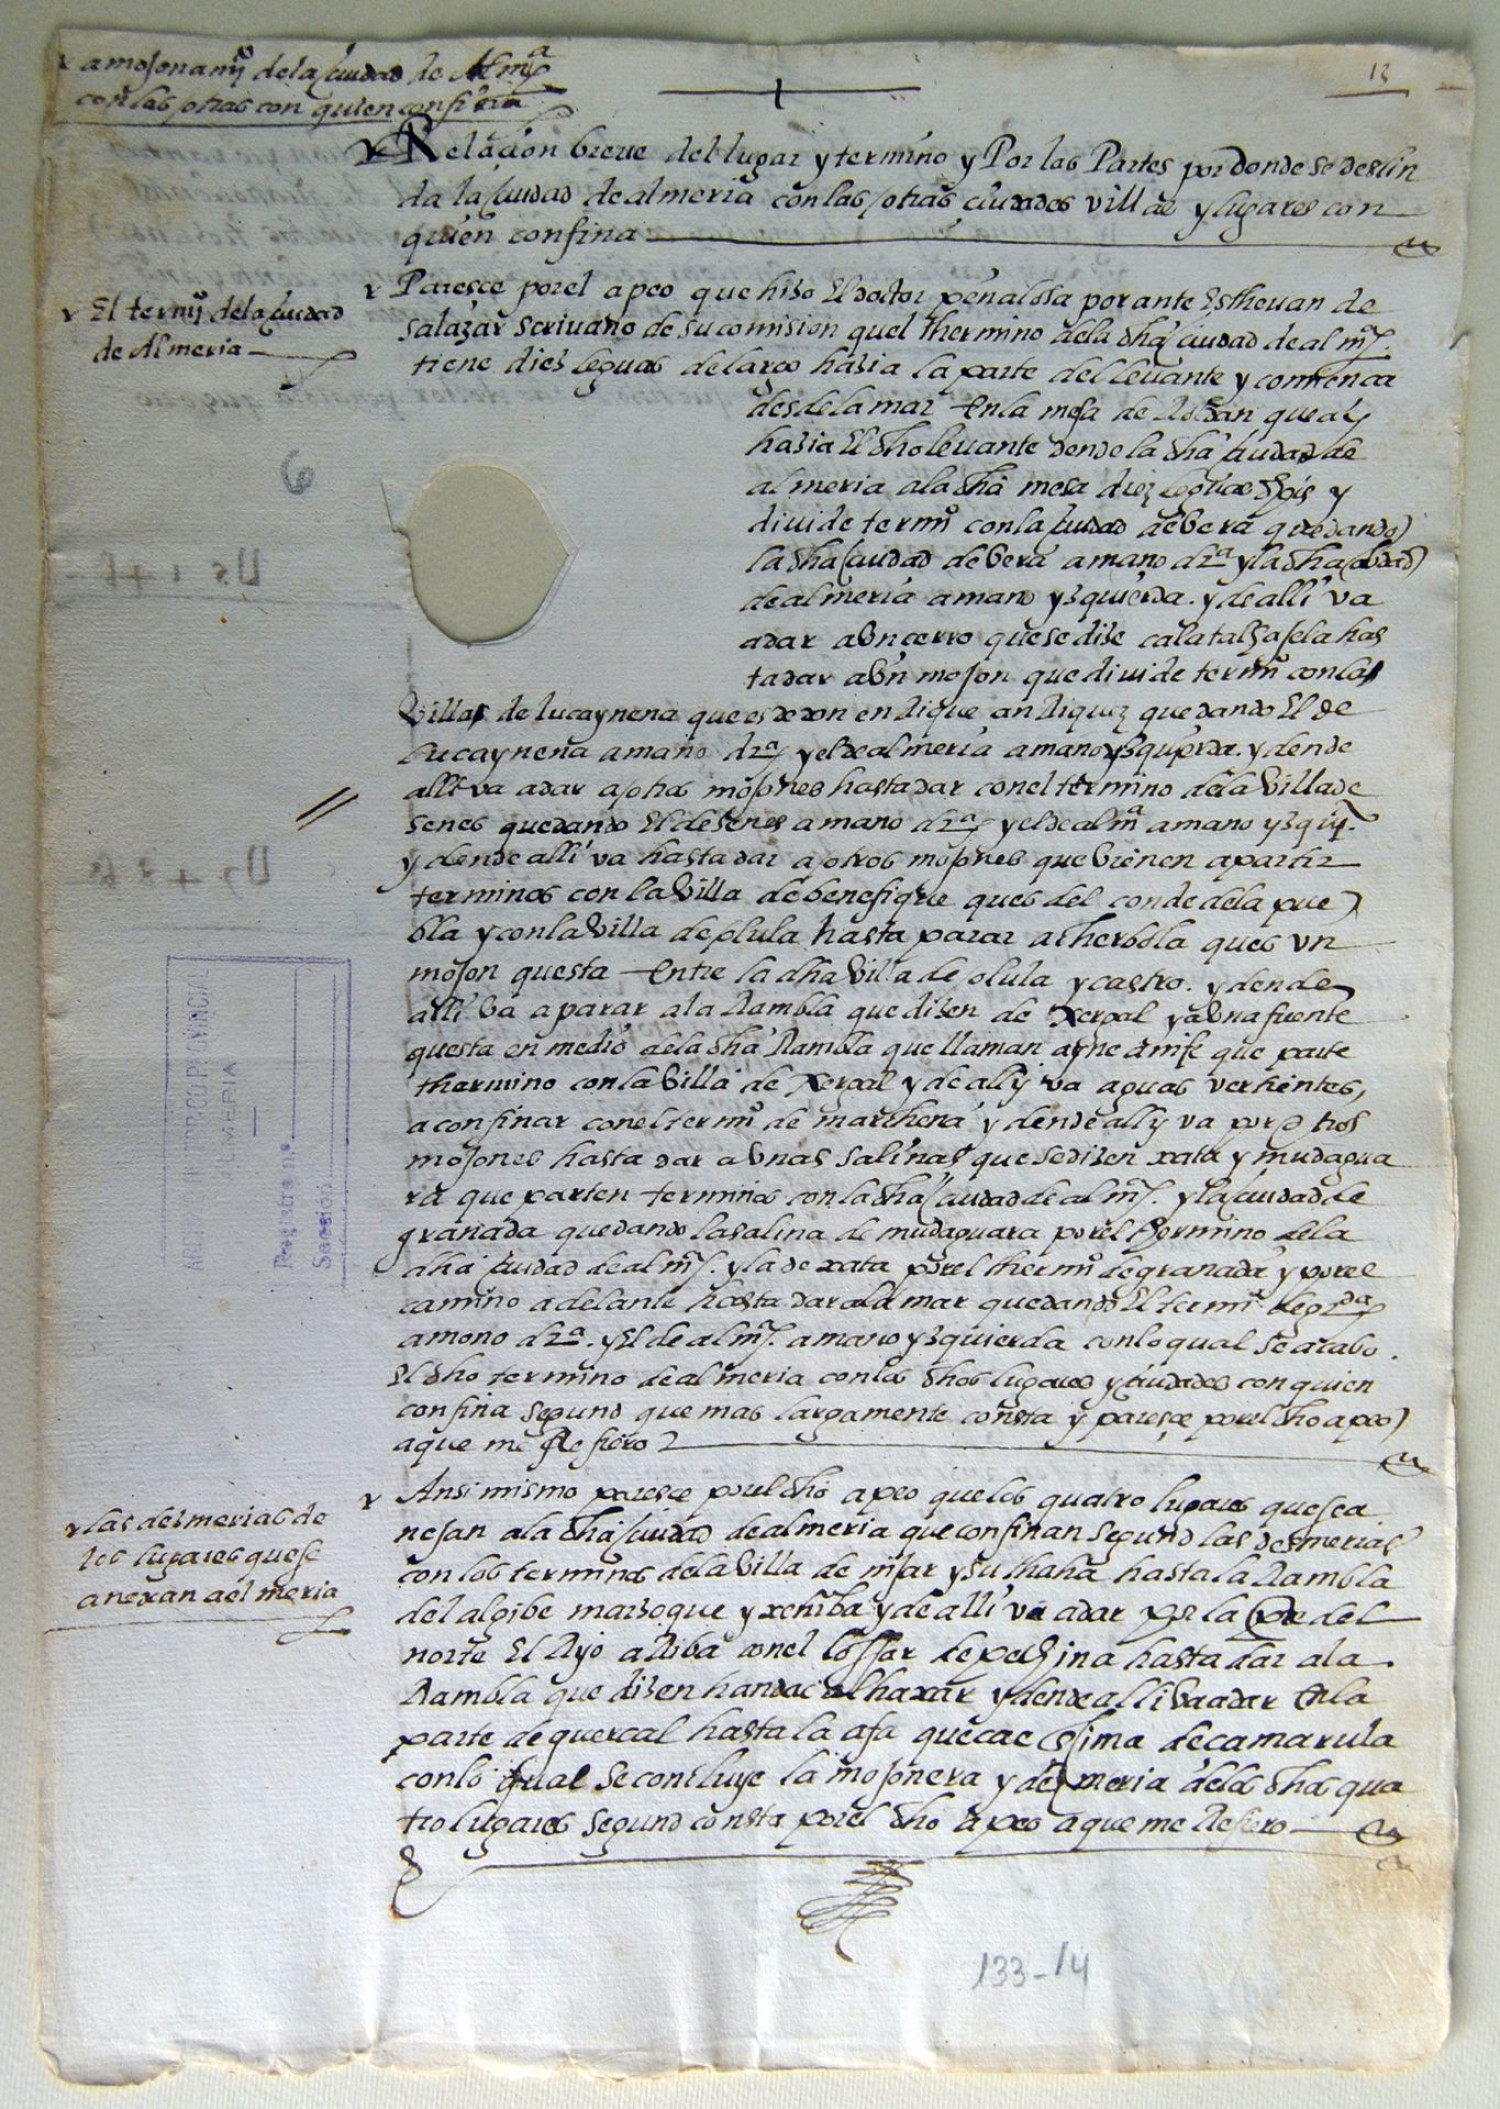 amojonamiº de la ciudad de Almª
con las otras con quien confina
13
Relaçion breue del lugar y termino y Por las Partes por donde se deslin
da la ciudad de almeria con las otras ciudades villas y lugares con
quien confina
El termiº de la ciudad
de Almeria
Paresce por el apeo que hizo El doctor peñalosa por ante Estheuan de
salazar scriuano de su comision quel thermino dela dha ciudad de almª.
tiene diez leguas de largo hazia la parte del leuante y comiença
desde la mar En la mesa de Roldan que ay
hazia El dho leuante dende la dha ciudad de
almeria a la dha mesa diez leguas y
diuide termiº con la ciudad de bera quedando
la dha ciudad de bera a mano drª y la dha ciudad
de almeria a mano yzquierda. y de alli va
a dar a Vn cerro que se dize has
ta dar a Vn mojon que diuide termiº con la
Villa de lucaynena que es de don enRique anRiquez quedando El de
Lucaynena a mano drª y el de almeria a mano yzquierda. y dende
alli va a dar a otros mojones hasta dar con el termino de la Villa de
senes quedando El de senes a mano drª y el de almª a mano yzqª.
y dende alli va hasta dar a otros mojones que vienen a partir
terminos con la Villa de benefique ques del conde de la pue
bla y con la Villa de olula hasta parar a therbola ques vn
mojon questa Entre la dha Villa de olula y castro. y dende
alli va a parar a la Rambla que dizen de Xergal y a Vna fuente
questa en medio de la dha Rambla que llaman que parte
thermino con la Villa de Xergal y de ally va aguas vertientes,
a confinar con el termº de marchena y dende ally va por otros
mojones hasta dar a Vnas salinas que se dizen xata y mudagua
ra que parten terminos con la dha ciudad de almª. y la ciudad de
granada quedando la salina de mudaguara por el thermino de la
dha ciudad de almª. y la de xata por el thermº de granada y por el
camino adelante hasta dar a la mar quedando El termiº de grda
a mano drª. y El de almª. a mano yzquierda con lo qual se acabo.
El dho termino de almeria con los dhos lugares y ciudades con quien
confina segund que mas largamente consta y paresçe por el dho apeo
a que me Refiero
las desmerias de
los lugares que se
anexan a almeria
Ansi mismo paresce por el dho apeo que los quatro lugares que se a
nejan a la dha ciudad de almeria que confinan segund las desmerias
con los terminos de la Villa de nijar y su thaha hasta la Rambla
del algibe marzoque y y de alli va a dar por la pte del
norte El Ryo aRiba con el de pechina hasta dar a la
Rambla que dizen y dende alli va a dar En la
parte de guercal hasta la que cae Ençima de camarula
con lo qual se concluye la mojonera y desmeria de los dhos qua
tro lugares segund consta por el dho apeo a que me Refiero
133-14
ARCHIVO HISTORICO PROVINCIAL
ALMERIA
Registro n.º
Sección